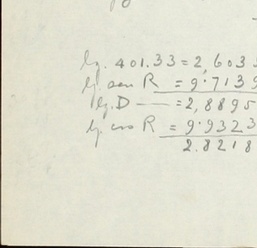 lg. 401.33 = 2,6035
lg sen R = 9.7139
lg. D — = 2,8895
lg cos R = 9.9323
2.8218